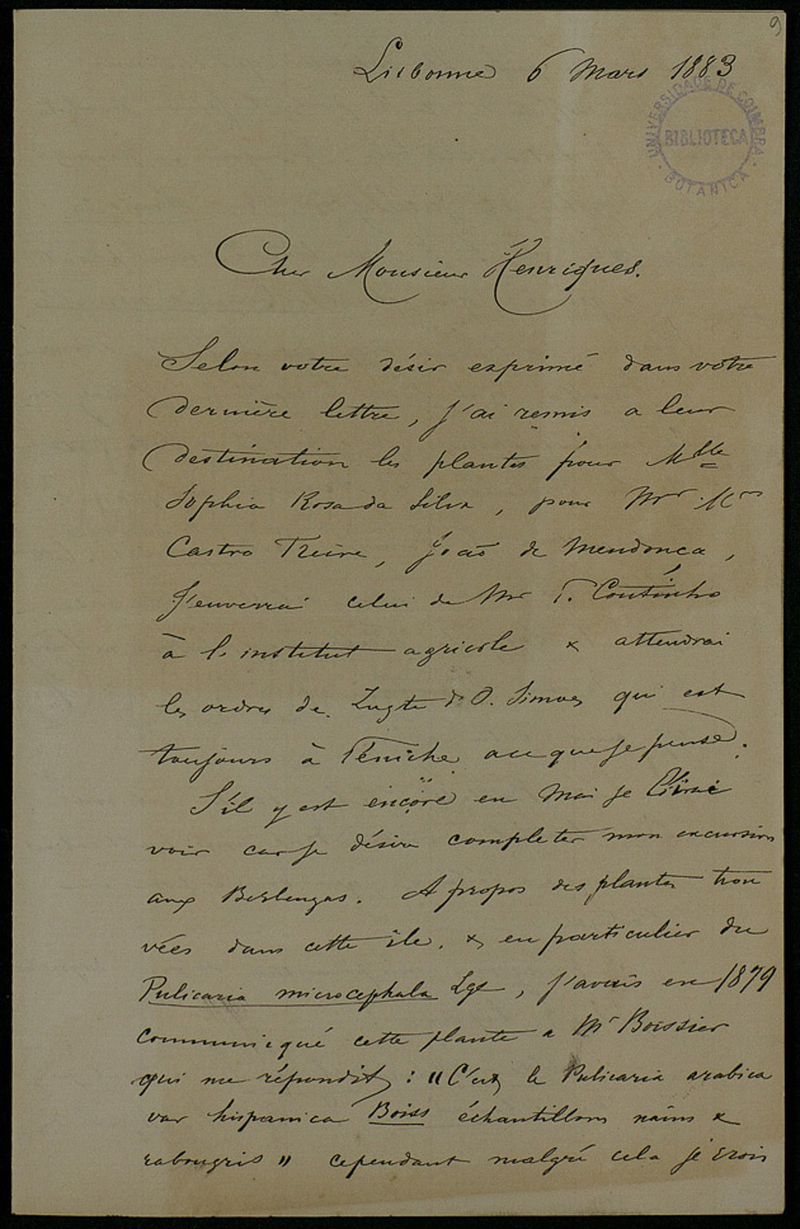 9
Lisbonne 6 Mars 1883
UNIVERSIDADE DE COIMBRA
BIBLIOTECA
BOTANICA
Cher Monsieur Henriques.
Selon votre désir exprimé dans votre
dernière lettre, j'ai remis a leur
destination les plantes pour Mlle
Sophia Rosa da Silva, pour Mr
Castro Freire, João de Mendonça,
J'enverrai celui de Mr P. Coutinho
à l'institut agricole & attendrai
les ordres de d'O. Simoes qui est
toujours à Péniche a ce que je pense.
S'il y est encore en Mai je l'irai
voir car je désire completer mon excursion
aux Berlengas. A propos des plantes trou
vées dans cette île. & en particulier du
Pulicaria microcephala Lge, j'avais en 1879
communiqué cette plante a Mr Boissier
qui me répondit : "C'est le Pulicaria arabica
var hispanica Boiss échantillons nains &
rabougris" cependant malgré cela je crois